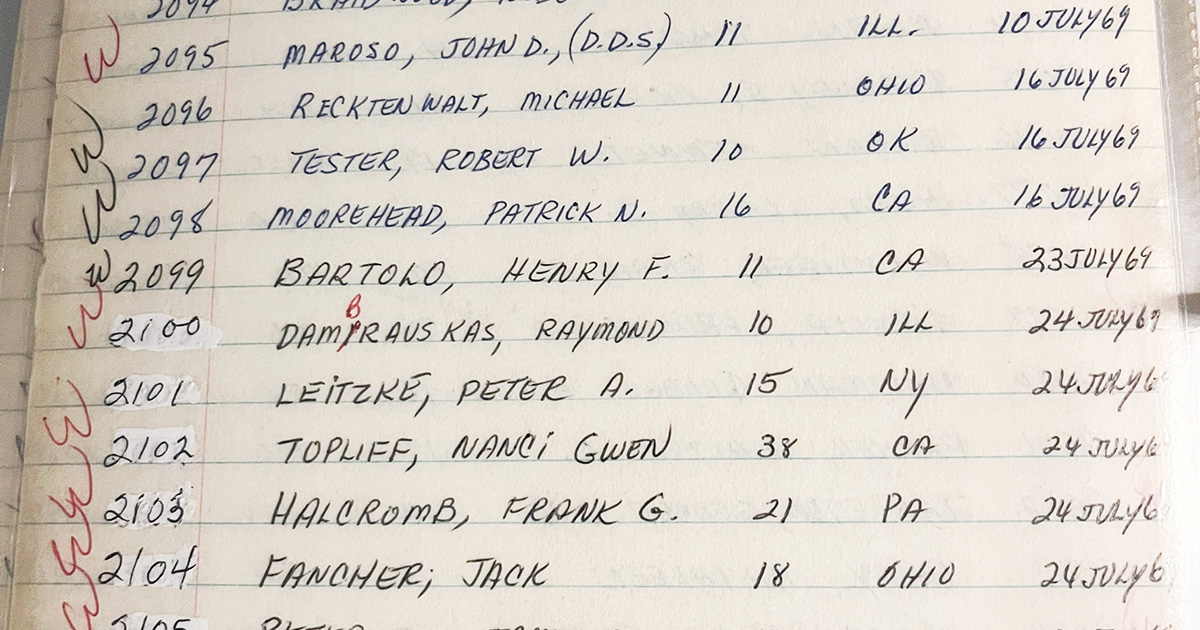 2094
W 2095 MAROSO, JOHN D., (D.D.S) 11 ILL. 10 JULY 69
2096 RECKTENWALT, MICHAEL 11 OHIO 16 JULY 69
W 2097 TESTER, ROBERT W. 10 OK 16 JULY 69
W 2098 MOOREHEAD, PATRICK N. 16 CA 16 JULY 69
W 2099 BARTOLO, HENRY F. 11 CA 23 JULY 69
W 2100 DAMBRAUSKAS, RAYMOND 10 ILL 24 JULY 69
W 2101 LEITZKE, PETER A. 15 NY 24 JULY 6
W 2102 TOPLIFF, NANCI GWEN 38 CA 24 JULY 6
W 2103 HALCROMB, FRANK G. 21 PA 24 JULY 6
W 2104 FANCHER, JACK 18 OHIO 24 JULY 6
2105